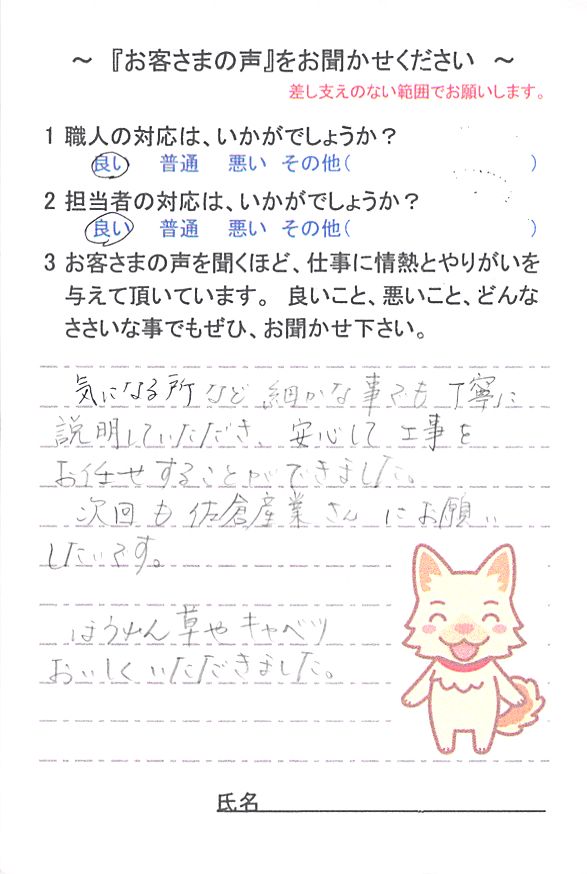 ～ 『お客さまの声』をお聞かせください ～
差し支えのない範囲でお願いします。
1 職人の対応は、いかがでしょうか？
良い 普通 悪い その他( )
2 担当者の対応は、いかがでしょうか？
良い 普通 悪い その他( )
3 お客さまの声を聞くほど、仕事に情熱とやりがいを
与えて頂いています。 良いこと、悪いこと、どんな
ささいな事でもぜひ、お聞かせ下さい。
気になる所など細かな事でも丁寧に
説明していただき、安心して工事を
お任せすることができました。
次回も佐倉産業さんにお願い
したいです。
ほうれん草やキャベツ
おいしくいただきました。
氏名